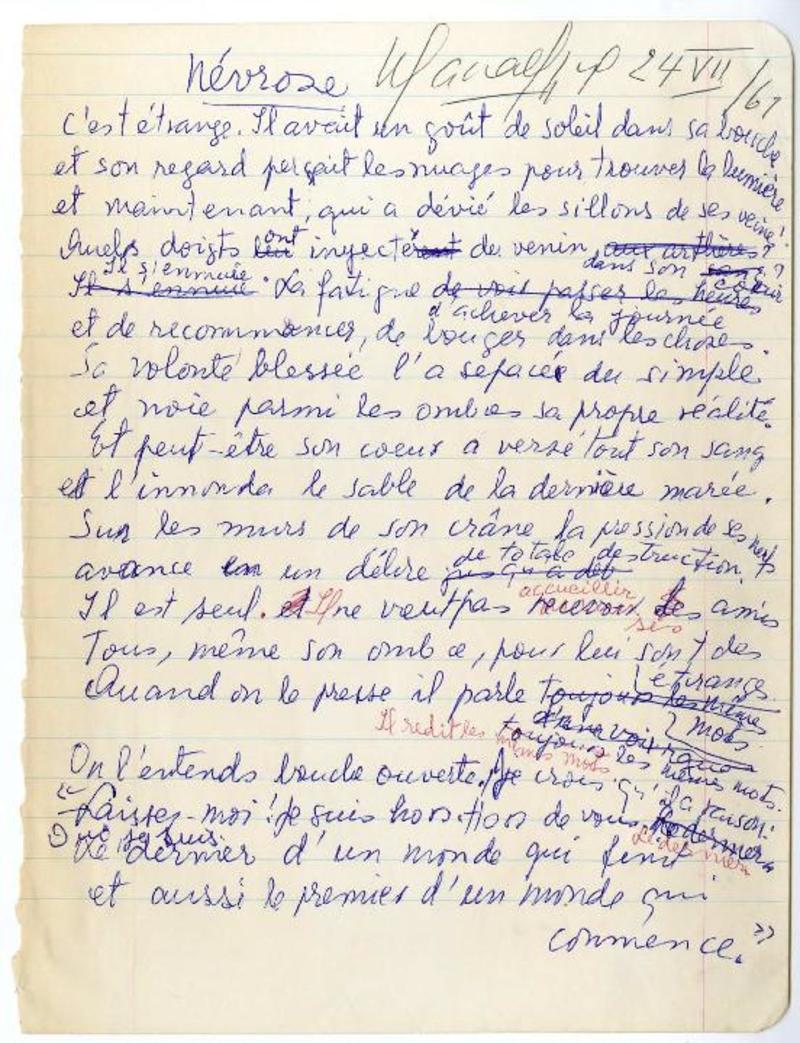 Névrose 24 VII /61
C'est étrange. Il avait un goût de soleil dans sa bouche
et son regard perçait les nuages pour trouver la lumière
et maintenant, qui a dévié les sillons de ses veines?
Quels doigts ont injecté de venin aux arthères?
Il s'ennuie dans son coeur?
Il s'ennuie. La fatigue de voir passer les heures
d'achever la journée
et de recommancer, de bouger dans les choses.
Sa volonté blesseé l'a separée du simple
et noie parmi les ombres sa propre réalité.
Et peut-être son coeur a versé tout son sang
et l'innonda le sable de la dernière marée.
Sur les murs de son crâne la pression de ses nerfs
de totale destruction.
avance en un délire jusqu'à
accueillir
Il est seul. Il ne veut pas recevoir les amis
ses
Tous, même son ombre, pour lui sont des
étrangers
Quand on le presse il parle toujours les mêmes
mots.
d'une voix
Il redit les mêmes mots toujours les mêmes mots.
On l'entends bouche ouverte. Je crois qu'il a raison:
"Laissez-moi! Je suis hors de vous, le dernier
que je suis. Le dernier
Le dernier d'un monde qui finit
et aussi le premier d'un monde qui
commence."